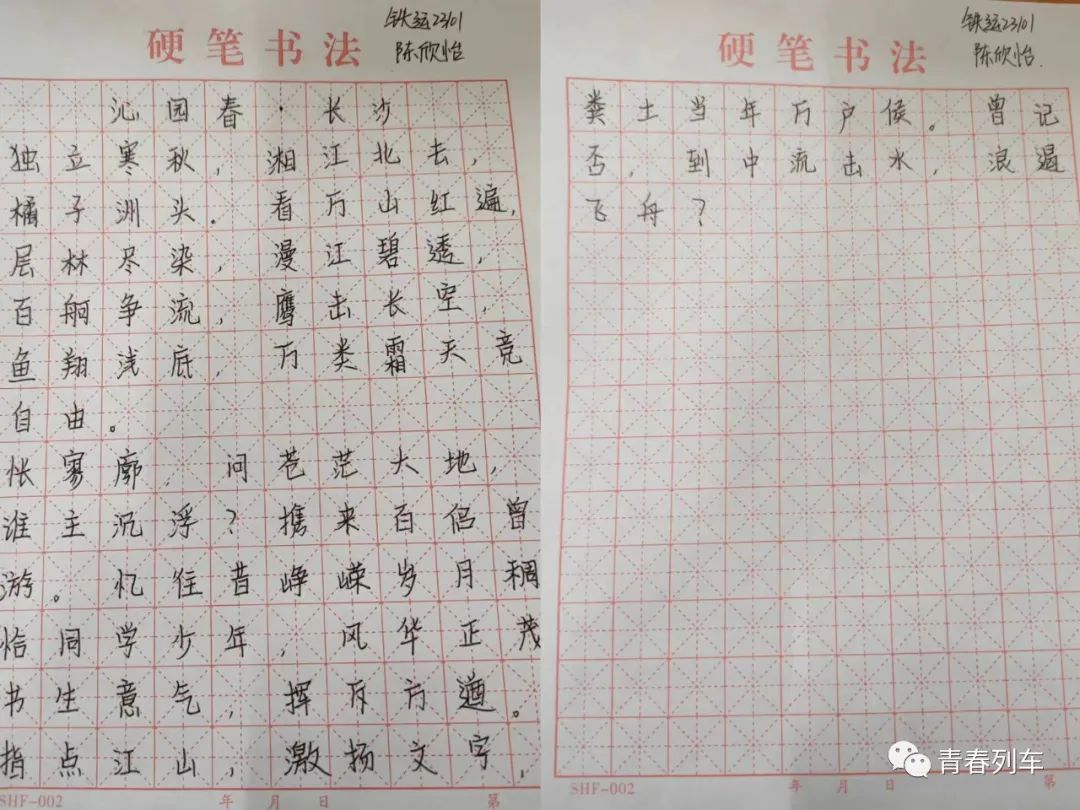 硬笔书法
铁运2301
陈欣怡
沁园春·长沙
独立寒秋，湘江北去，
橘子洲头。看万山红遍，
层林尽染，漫江碧透，
百舸争流，鹰击长空，
鱼翔浅底，万类霜天竞
自由。
怅寥廓，问苍茫大地，
谁主沉浮？携来百侣曾
游。忆往昔峥嵘岁月稠
恰同学少年，风华正茂
书生意气，挥斥方遒。
指点江山，激扬文字，
SHF-002 年 月 日 第
硬笔书法
铁运2301
陈欣怡.
粪土当年万户侯。曾记
否，到中流击水，浪遏
飞舟？
SHF-002 年 月 日 第
青春列车